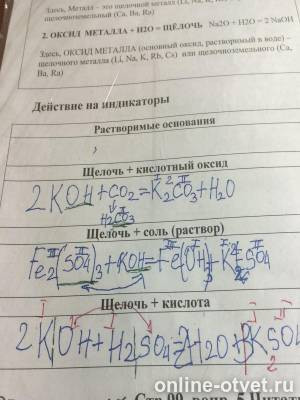 Здесь, Металл – это щелочной металл (Li, Na, K,
щелочноземельный (Ca, Ba, Ra)
2. ОКСИД МЕТАЛЛА + H2O = ЩЁЛОЧЬ Na2O + H2O = 2 NaOH
Здесь, ОКСИД МЕТАЛЛА (основный оксид, растворимый в воде) –
щелочного металла (Li, Na, K, Rb, Cs) или щелочноземельного (Ca,
Ba, Ra)
Действие на индикаторы
Растворимые основания
Щелочь + кислотный оксид
2KOH + CO2 = K2CO3 + H2O
H2CO3
Щелочь + соль (раствор)
Fe2(SO4)3 + KOH = Fe(OH) + K2SO4
Щелочь + кислота
2KOH + H2SO4 = 2H2O + KSO
2
Стр 99, вопр. 5
online-otvet.ru